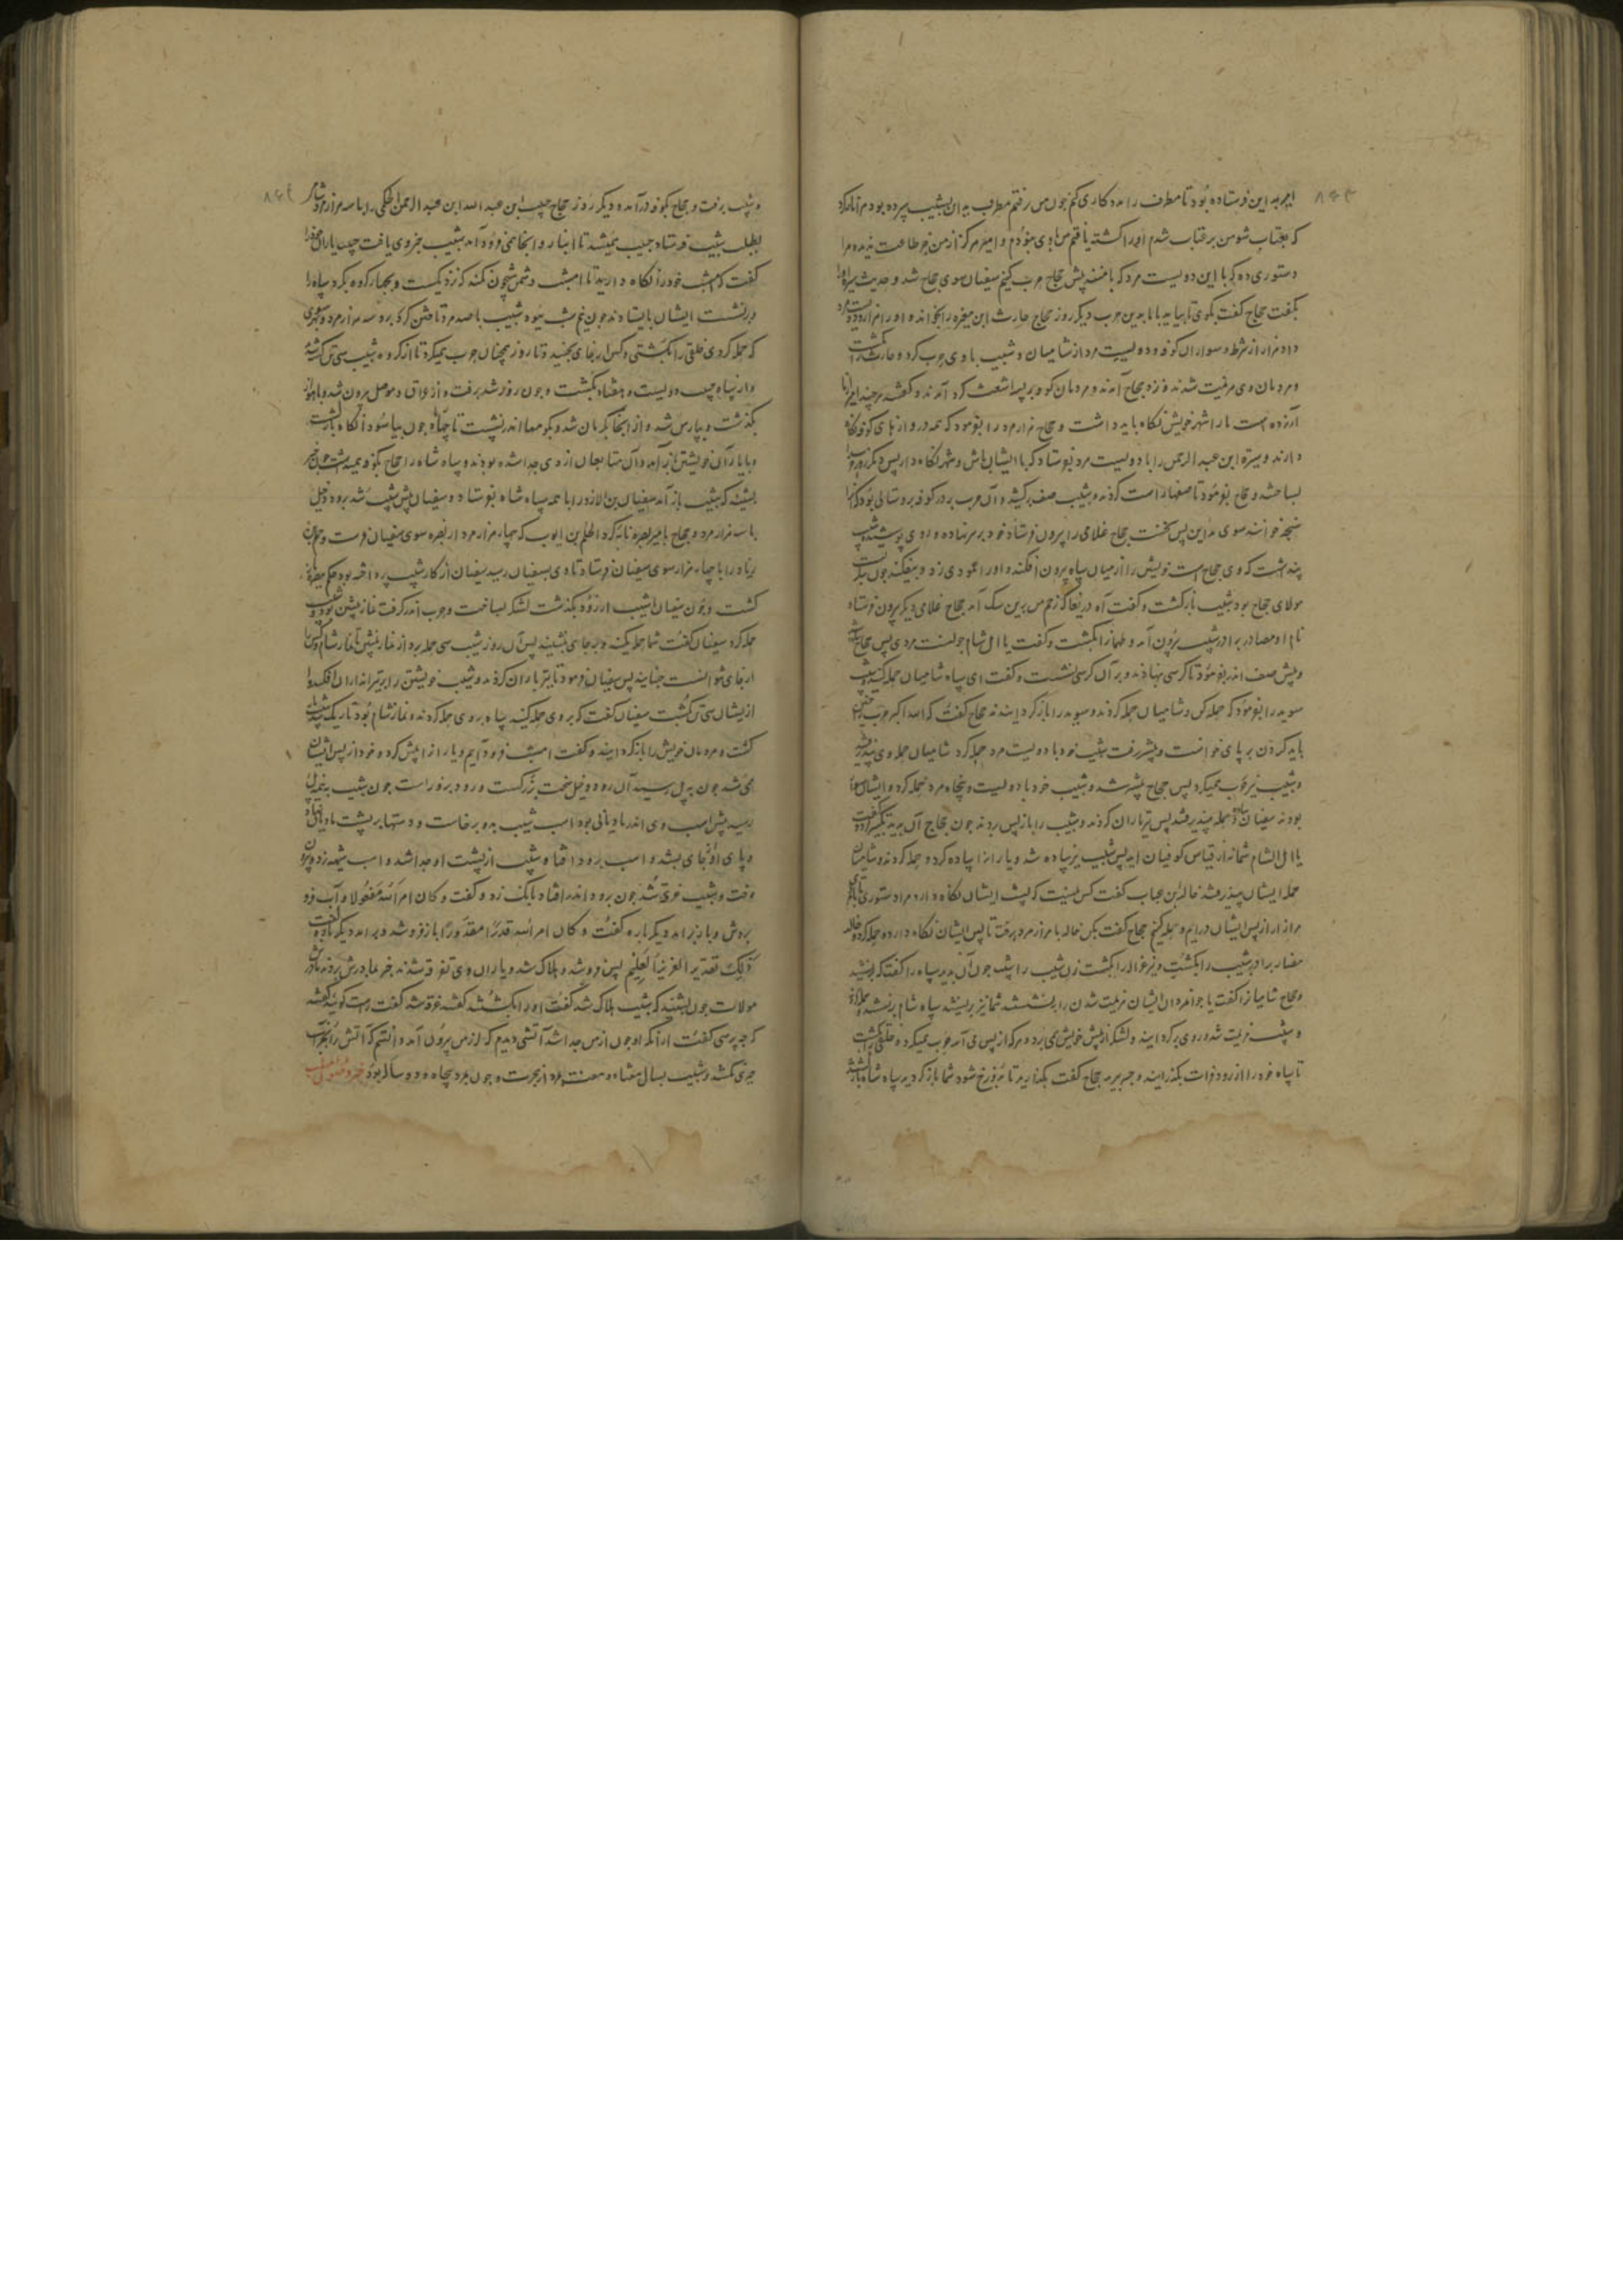 امیر به این فرستاده بود تا مطرف را مدد کاری کنم چون من رفتم مطرف به ان شبیب سپرده بود مرا باز کرد
که بعتاب شو من بر عتاب شدم او را کشته یافتم من با وی نبودم و امیر هرگز از من جز طاعت ندیده مرا
دستوری ده که با این دویست مرد که با منند پیش حجاج حرب کنیم سفیان سوی حجاج شد و حدیث سبره او را
بگفت حجاج گفت بگوی تا بیاید با ما بدین حرب دیگر روز حجاج حارث ابن مغیره را بخواند و او را هزار و دویست مرد
داد هزار از شرط و سواران کوفه و دویست مرد از شامیان و شبیب با وی حرب کرد و حارث را بکشت
و مردمان وی هزیمت شدند و نزد حجاج آمدند و مردمان کوفه
آزرده است ما را شهر خویش نگاه باید داشت و حجاج هزار مرد را بفرمود که همه دروازهای کوفه نگاه
دارند و سبرة ابن عبد الرحمن را با دویست مرد بفرستاد که با ایشان باش و شهر نگاه دار پس دیگر روز
بساختند و حجاج بفرمود تا صفها راست کردند و شبیب صف برکشید و آن حرب بر در کوفه بر
سبخه خوانند سوی مداین پس نخست حجاج غلامی را بیرون فرستاد خود بر سر نهاده و روی پوشیده شبیب
پنداشت که وی حجاج است خویش را از میان سپاه بیرون افکند و او را عمودی زد و بیفکند چون
مولای حجاج بود شبیب بازگشت و گفت آه دریغا که زخم من برین سگ آمد حجاج غلامی دیگر بیرون فرستاد
نام او مصادر برادر شبیب بیرون آمد و طهمان را بکشت و گفت یا اهل شام جولنت مردی پس حجاج
و پیش صف اندر بفرمود تا کرسی نهادند و بر آن کرسی نشست و گفت ای سپاه شامیان حمله کنید شبیب
سوید را بفرمود که حمله کن و شامیان حمله کردند و سوید را باز گردانیدند حجاج گفت که الله اکبر حرب چنین
باید کردن بر پای خواست و پیشتر رفت شبیب خود با دویست مرد حمله کرد شامیان حمله وی بپذیرفتند
و شبیب نیز حرب همیکرد پس حجاج پیشتر شد و شبیب خود با دویست و پنجاه مرد حمله کرد و ایشان سوار
بودند سفیان پیاده حمله بپذیرفتند پس تیرباران کردند و شبیب را باز پس بردند چون حجاج آن بدید تکبیر کرد و گفت
یا اهل الشام شما نه از قیاس کوفیان اید پس شبیب نیز پیاده شد و یاران را پیاده کرد و حمله کردند و شامیان
حمله ایشان بپذیرفتند خالد بن عتاب گفت کس نیست که پشت ایشان نگاه دارد مرا دستوری ده تا با
هزار از پس ایشان درایم و حمله کنم حجاج گفت بکن خالد با هزار مرد برفت تا پس ایشان نگاه دارد و حمله کرد و خالد
مصاد برادر شبیب را بکشت و نیز غزاله را بکشت زن شبیب را شبیب چون آن بدید سپاه را گفتا که بنشینید
و حجاج شامیان را گفت یا جوانمردان ایشان هزیمت شدن را بنشستند شما نیز برنشینید سپاه شام برنشستند و حمله
و شبیب هزیمت شد و روی برگردانید و لشکر از پیش خویش همی برد و هر که از پس می آمد حرب همیکرد و خلقی بکشت
تا سپاه خود را از رود فرات بگذرانید و جسر ببرید حجاج گفت بگذارید تا بدوزخ شود شما باز گردید سپاه شام باز گشتند
و شبیب برفت و حجاج بکوفه درآمد و دیگر روز حجاج حبیب ابن عبد الله ابن عبد الرحمن الحکمی را با سه هزار مرد شام
بطلب شبیب فرستاد حبیب همیشد تا انبار و آنجا همی فرود آمد شبیب خبر وی یافت حبیب یاران خود را
گفت که امشب خود را نگاه دارید تا امشب دشمن شبیخون نکند که نزدیکست و بچهار کروه بکرد سپاه را
و بر نشست ایشان بایستادند چون نیم شب ببود شبیب با صد مرد تاختن کرد بر و سه هزار مرد
که حمله کردی خلقی را بکشتی و کس از جای نجنبید و تا روز همچنان حرب همیکرد تا از کروه شبیب سی تن کشته شد
و از سپاه حبیب دویست و هفتاد بکشت و چون روز شد برفت و از عراق و موصل بیرون شد و باهواز
بگذشت و بپارس شد و از آنجا بکرمان شد و بکوه معا اندر نشست تا چهار ماه چون بیاسود آنگاه بازگشت
و با یاران خویشتن باز آمد و آن متابعان از وی جدا شده بودند و سپاه شام را حجاج بکوفه همیداشت چون خبر
بشنید که شبیب باز آمد سفیان بن الازور را با همه سپاه شام بفرستاد و سفیان پیش شبیب شد برود دجیل
با سه هزار مرد و حجاج بامیر بصره نامه کرد الحکم بن ایوب که چهار هزار مرد از بصره سوی سفیان فرست و حکم
زیاد را با چهار هزار سوی سفیان فرستاد تا وی بسفیان رسید سفیان از کار شبیب پرداخته بود
گشت و چون سفیان بشبیب از رود بگذشت لشکر بساخت و حرب اندر گرفت نماز پیشین بود و شبیب
حمله کرد سفیان گفت شما حمله مکنید و بر جای بنشینید پس آن روز شبیب سی حمله برد از نماز پیشین تا نماز شام و کس را
از جای نتوانست جنبانید پس سفیان فرمود تا تیرباران کردند و شبیب خویشتن را بر تیراندازان افکند و
از ایشان سی تن بکشت سفیان گفت که بر وی حمله کنید سپاه بر وی حمله کردند و نماز شام بود تاریک شد شبیب باز
گشت و مردمان خویش را باز گردانید و گفت امشب فرود آییم و یاران از پیش کرد و خود از پس ایشان
همی شد چون به پل رسید آن رود دجیل سخت بزرگست و رود بزور است چون شبیب به نیمه پل
رسید پیش اسب وی اندر مادیانی بود اسب شبیب بدو برخاست و دستها بر پشت مادیان نهاد
و پای او از جای بشد و اسب برود افتاد و شبیب از پشت او جدا شد و اسب شیهه زد و بیرون
رفت و شبیب غرق شد چون برود اندر افتاد بانگ زد و گفت و کان امر الله مفعولا و آب فرو
بردش و باز بر آمد دیگر باره گفت و کان امر الله قدرا مقدورا باز فرو شد و بر آمد دیگر باره گفت
ذلک تقدیر العزیز العلیم پس فرو شد و هلاک شد و یاران وی تفرقه شدند خبر بمادرش بردند
مولات چون بشنید که شبیب هلاک شد گفت او را بکشتند گفتند غرقه شد گفت راست گویید گفتند
که چه پرسی گفت از آنکه او چون از من جدا شد آتشی دیدم که از من بیرون آمد و دانستم که آتش را بجز آب
چیزی نکشد و شبیب بسال هفتاد و هفت بمرد از هجرت و چون بمرد پنجاه و دو ساله بود